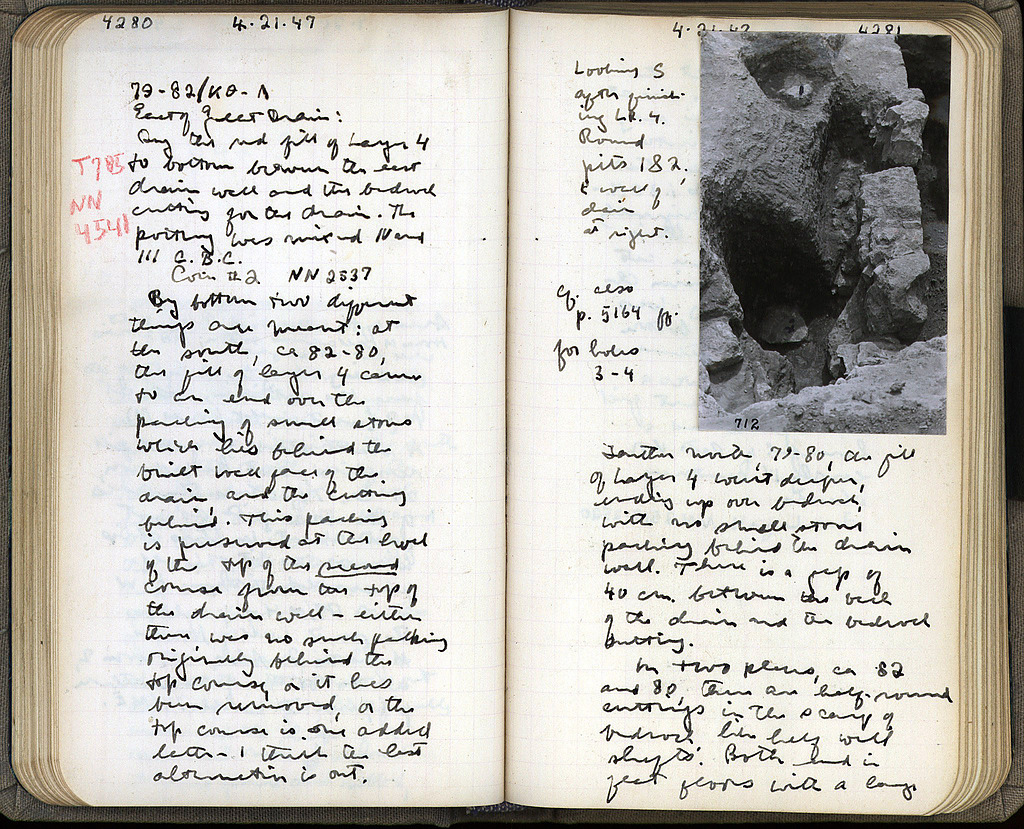 4280 4.21.47
79-82/ΚΘ-Λ
East of Great Drain:
Dug this red fill of Layer 4
to bottom between the east
drain wall and the bedrock
cutting for the drain. The
pottery was mixed IV and
III C. B.C.
Coin #2 NN 2537
T785
NN
4541
By bottom two different
things are meant: at
the south, ca 82-80,
this fill of layer 4 came
to an end over the
packing of small stones
which lies behind the
built wall face of the
drain, and the cutting
behind. This packing
is preserved at the level
of the top of the second
course from the top of
the drain wall – either
there was no such packing
originally behind the
top course, or it has
been removed, or the
top course is one added
later – I think the last
alternative is out.
4.21.47 4281
Looking S
after finish-
ing LR. 4.
Round
pits 1&2,
E wall of
drain
at right.
cf. also
p. 5164 ff.
for holes
3-4
712
Farther north, 79-80, the fill
of Layer 4 went deeper,
ending up over bedrock,
with no small stones
packing behind the drain
wall. There is a gap of
40 cm. between the back
of the drain and the bedrock
cutting.
In two places, ca 82
and 80, there are half-round
cuttings in the scarp of
bedrock like half well
shafts. Both end in
flat floors with a large